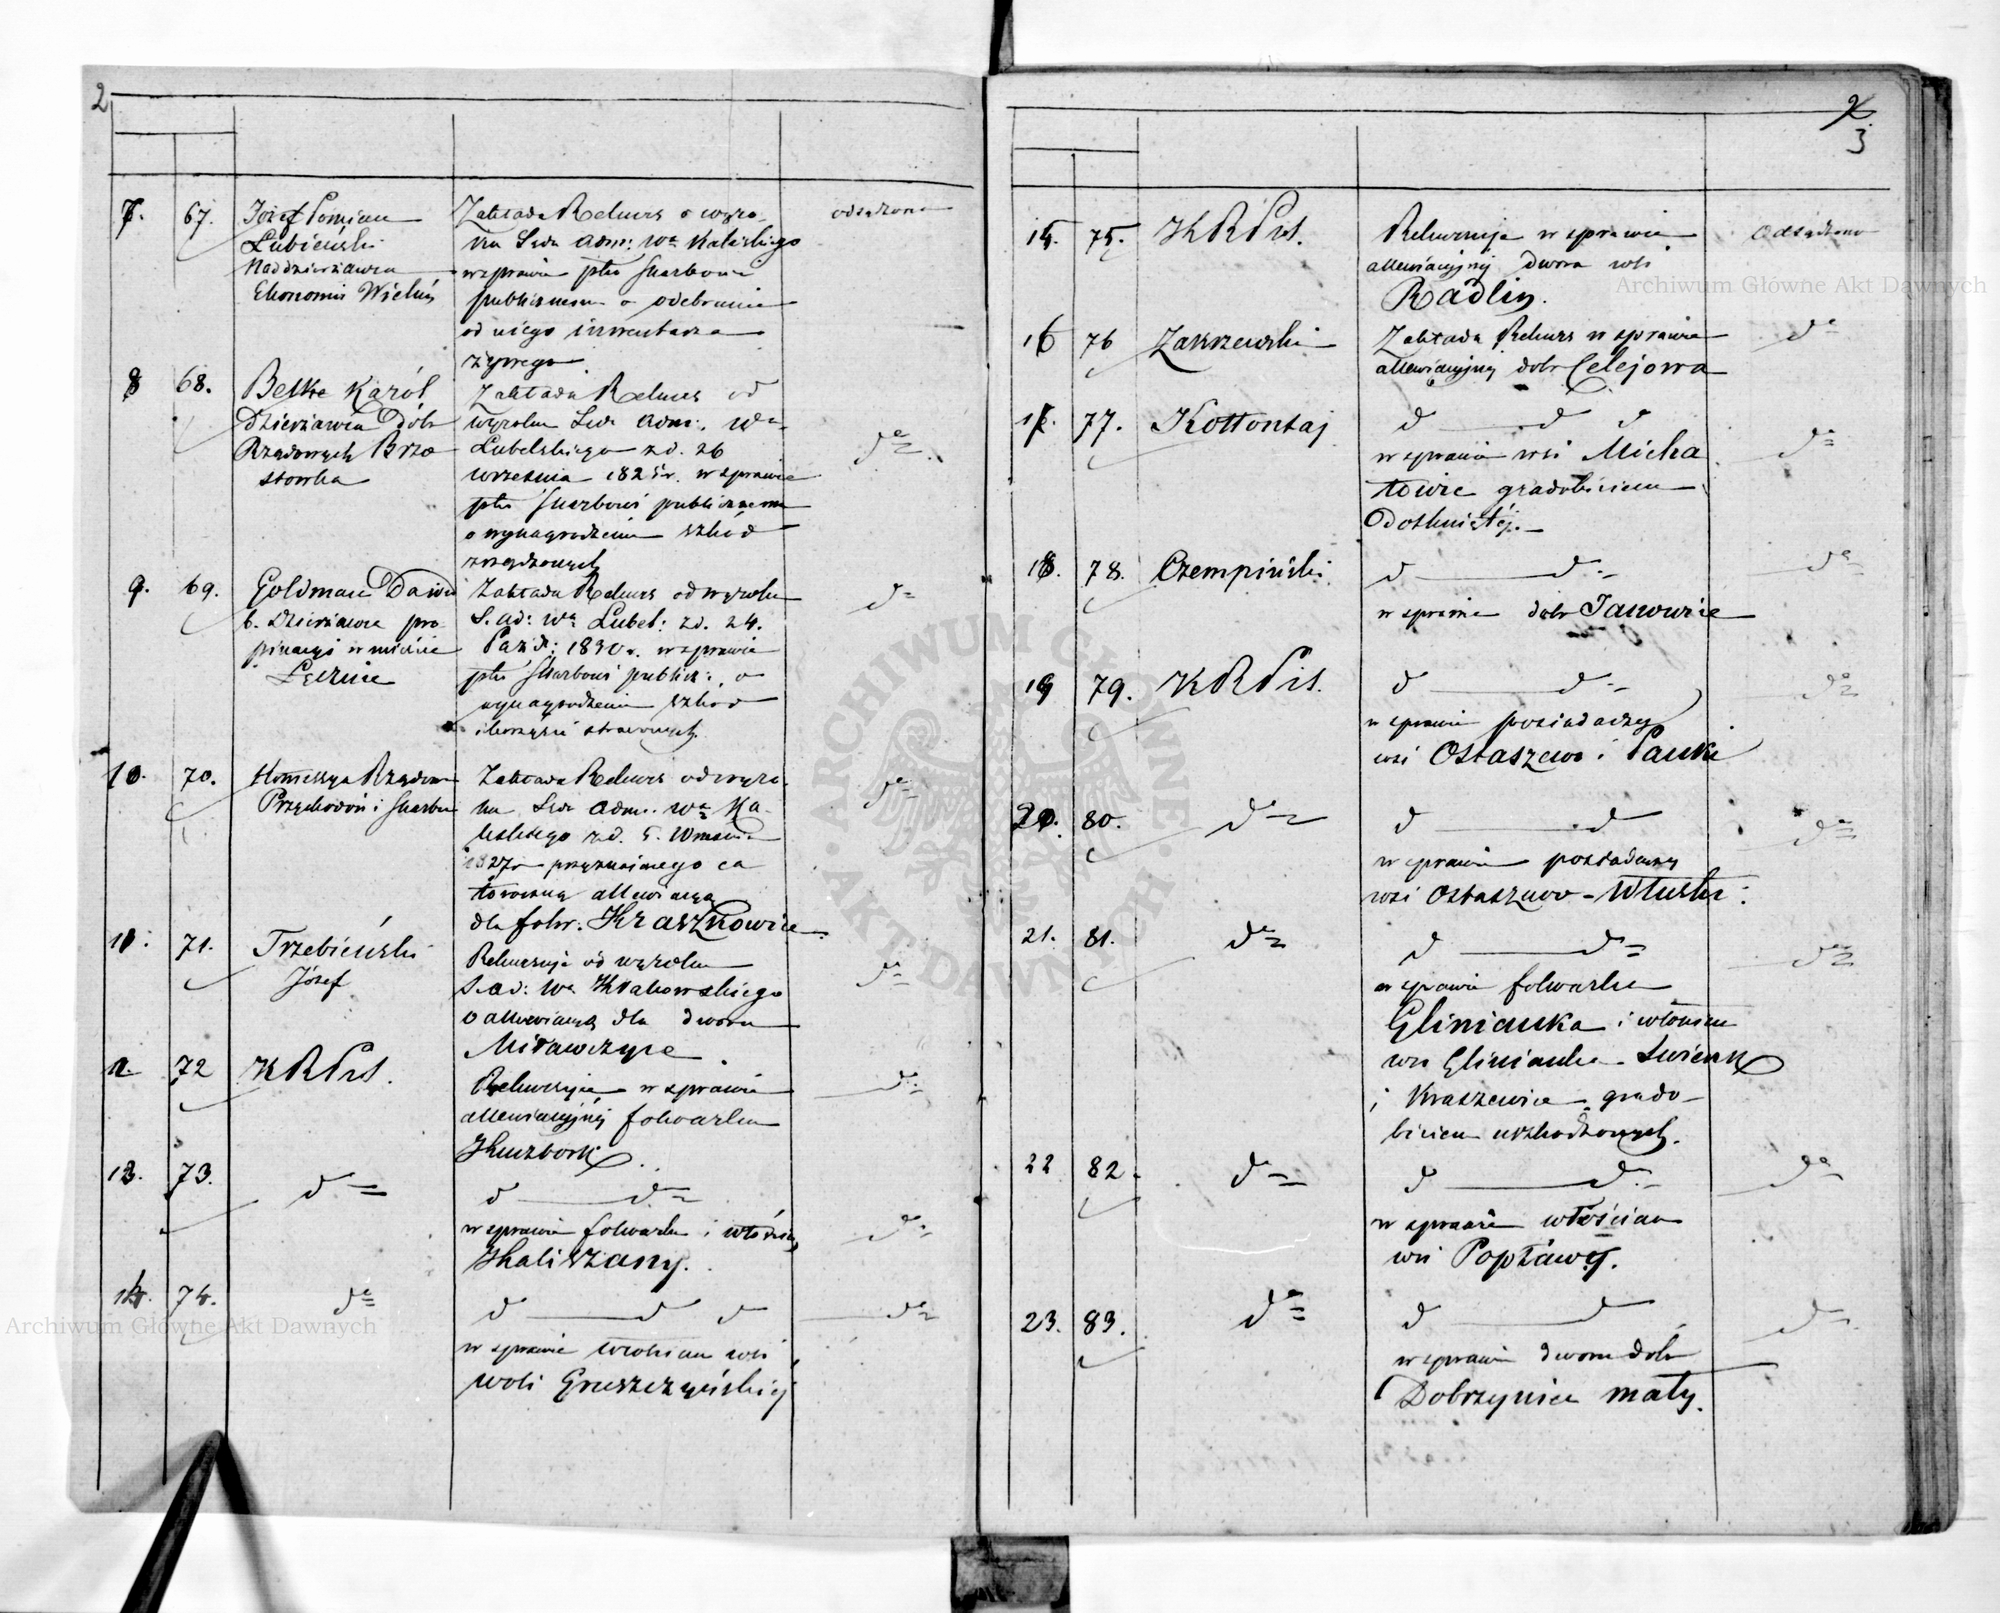 2
7. 67. Józef Pomian
Łubieński
Naddzierżawca
Ekonomii Wieluń
Zakłada Rekurs o wyro-
ku Sądu adm: Wa Kaliskiego
w sprawie ptko Skarbowi
publicznemu o odebranie
od niego inwentarza
żywego.
odsądzono
8 68. Betke Karól
Dzierżawca Dóbr
Rządowych Brzo
stowka
Zakłada Rekurs od
wyroku Sądu adm: Wa
Lubelskiego z d. 26
września 1825 r. w sprawie
ptko Skarbowi publicznemu
o wynagrodzenie szkód
zrządzonych
do
9. 69. Goldman Dawid
b. Dzierżawca pro
pinacyi w mieście
Łęcznie
Zakłada Rekurs od wyroku
S. ad: Wa Lubel: z d. 24.
Paźd: 1830 r. w sprawie
ptko Skarbowi publicz: o
wynagrodzenie szkód
i korzyści straconych
do
10. 70. Kommissya Rządowa
Przychodów i Skarbu
Zakłada Rekurs od wyro-
ku Sądu adm. Wa Ka-
liskiego z d. 5. Września
1827 r przyznającego ca
łoroczną allewiacyą
dla folw: Kraszkowice
do
11. 71. Trzebiński
Józef
Rekursuje od wyroku
S. ad: Wa Krakowskiego
o allewiacyą dla dworu
Mirawczyce.
do
12. 72 KRPiS.
Rekursuje w sprawie
allewiacyjnéj folwarku
Kuczbork.
do
13. 73. do
d do
w sprawie folwarku i włościan
Kaliszany.
do
14. 74. do
d d d
w sprawie włościan wsi
Woli Gruszczyńskiéj
do
2
3
15. 75. KRPiS.
Rekursuje w sprawie
allewiacyjnéj dworu wsi
Radlin.
Odsądzono
16 76 Zakrzewski
Zakłada Rekurs w sprawie
allewiacyjnéj dobr Celejowa
do
17. 77. Kołłontaj
d d d
w sprawie wsi Micha
łowic gradobiciem
dotkniętéj.
do
18. 78. Czempiński
d do
w sprawie dobr Janowice
do
19 79. KRPiS.
d do
w sprawie posiadaczy
wsi Ostaszewo i Pauki
do
20. 80. do
d d
w sprawie posiadaczy
wsi Ostaszewo - Włuski.
do
21. 81. do
d do
w sprawie folwarku
Glinianka i włościan
wsi Glinianka - Swiersk
i Kraszewice grado-
biciem uszkodzonych.
do
22 82. do
d do
w sprawie włościan
wsi Popławy.
do
23. 83. do
d d
w sprawie dworu dobr
Dobrzynica mały.
do
Archiwum Główne Akt Dawnych
Archiwum Główne Akt Dawnych
ARCHIWUM GŁÓWNE AKT DAWNYCH